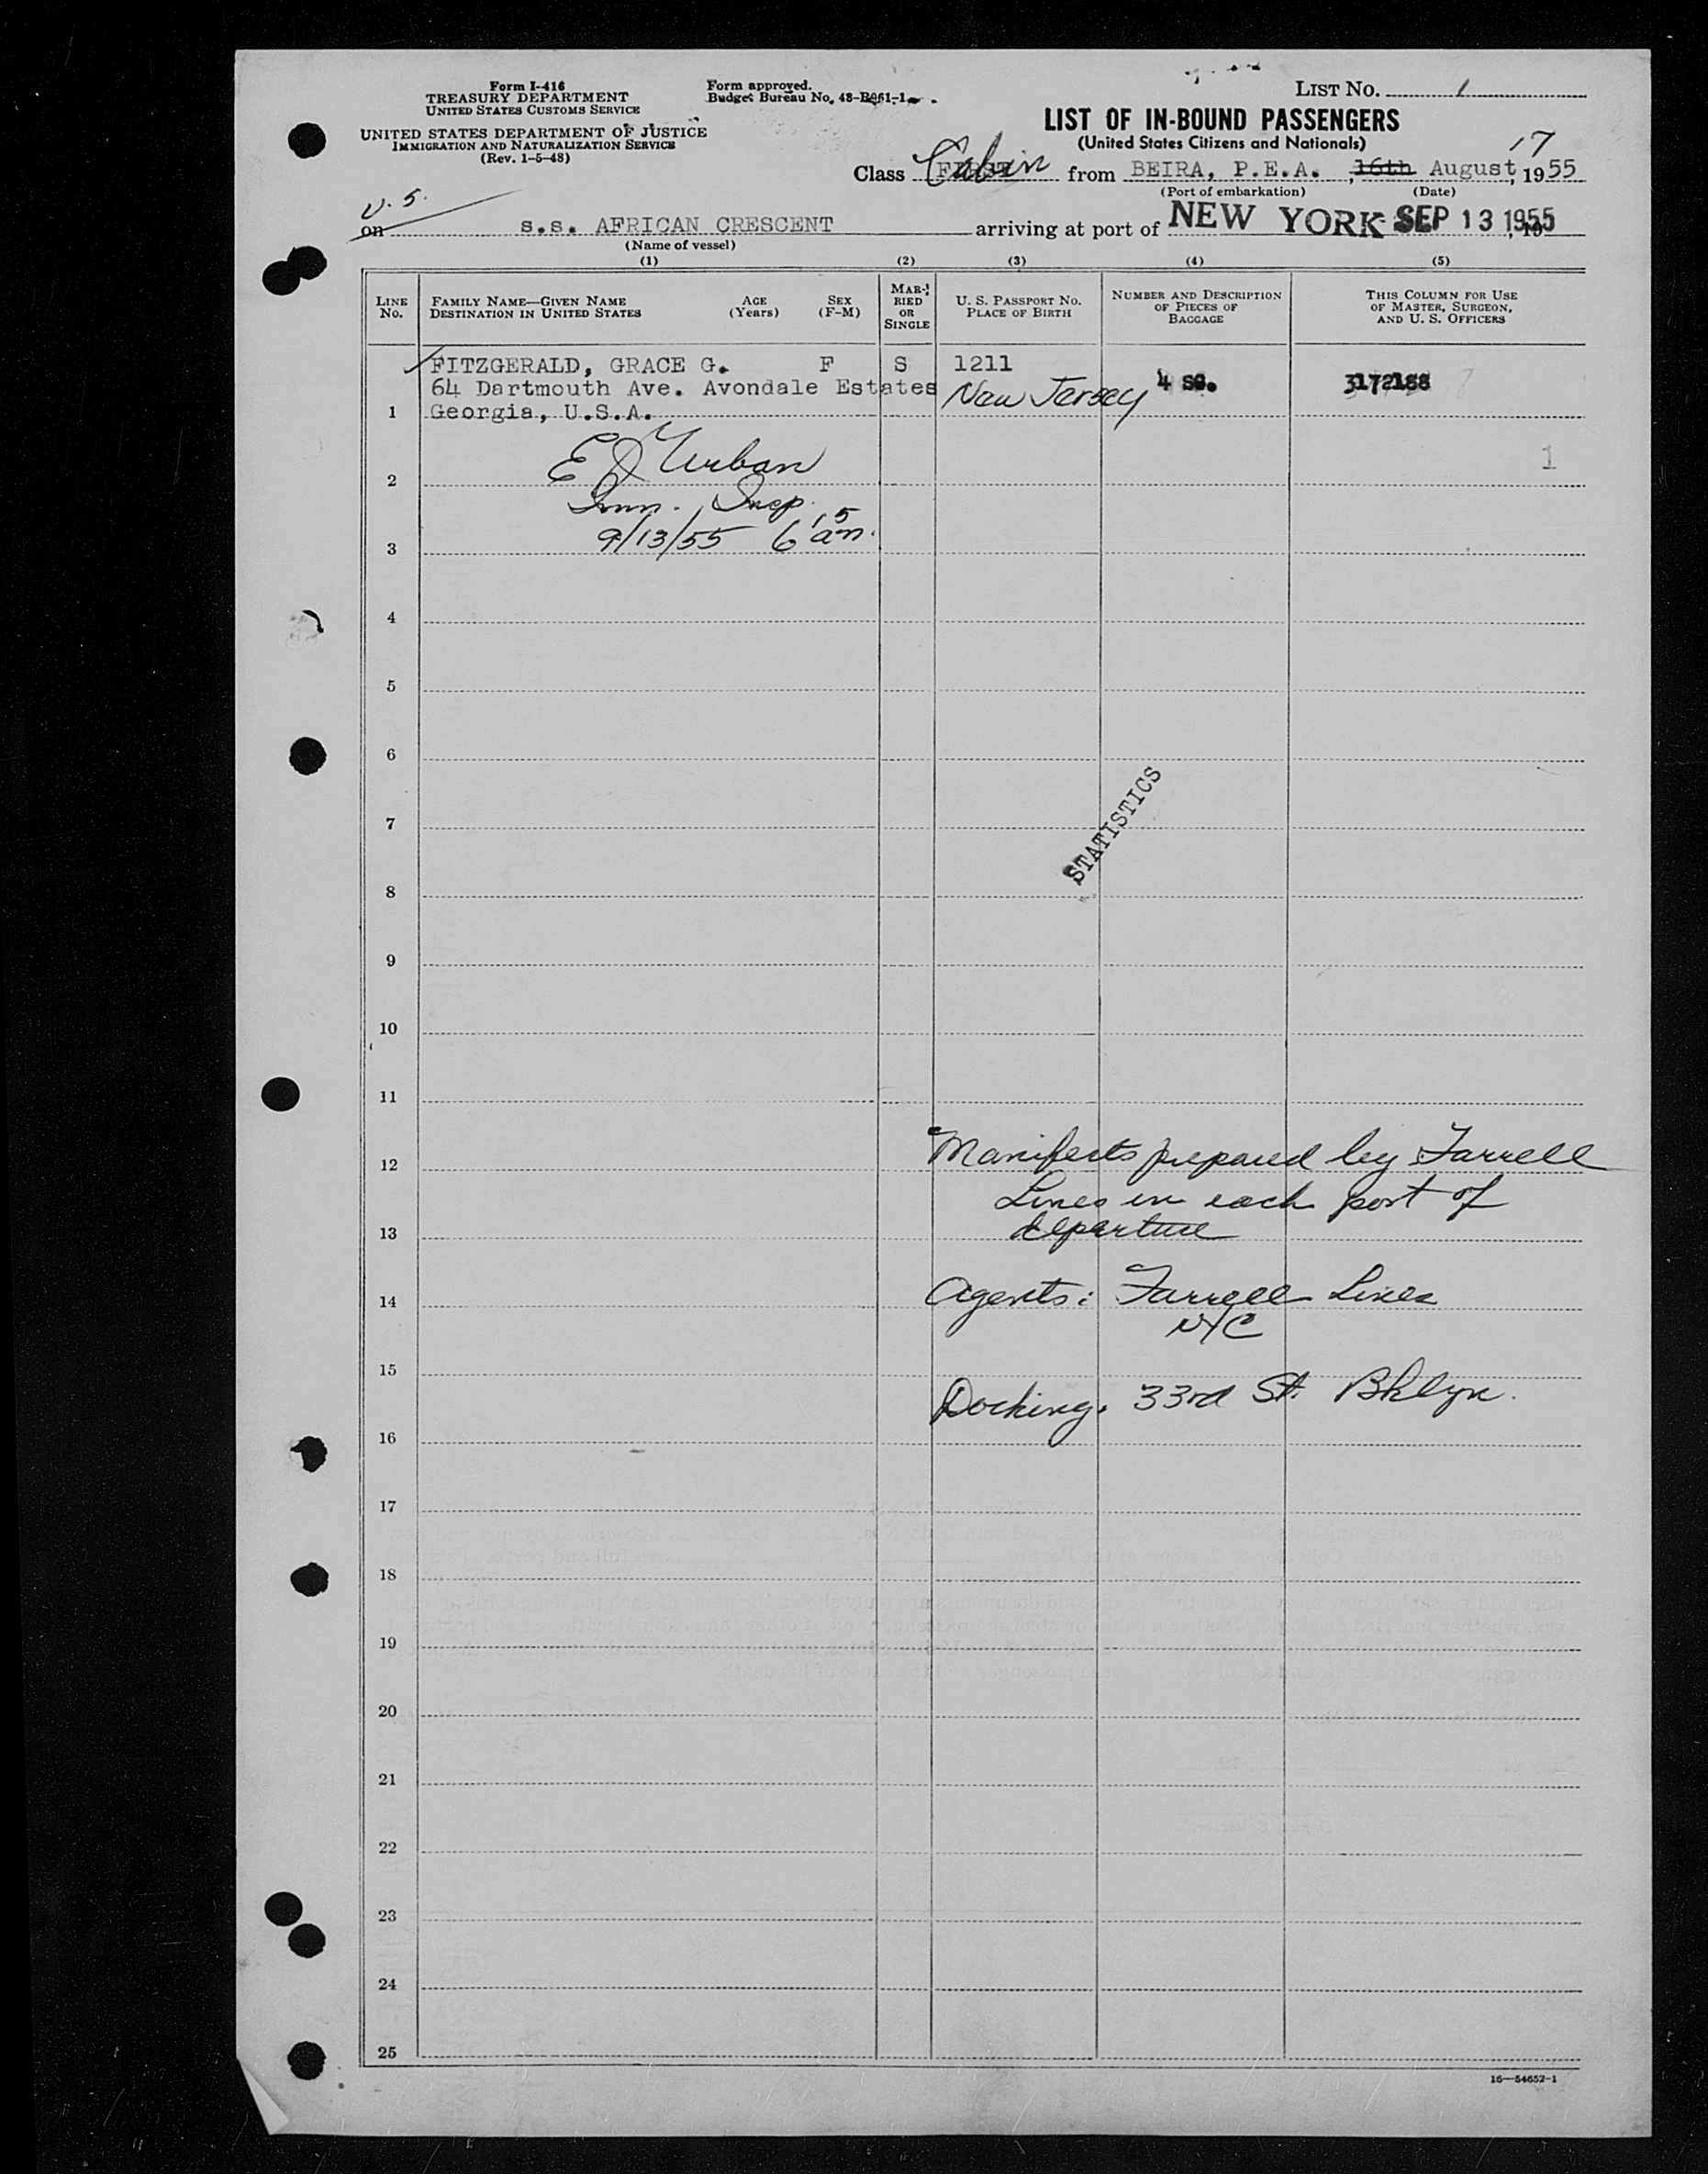 Form I-416
TREASURY DEPARTMENT
UNITED STATES CUSTOMS SERVICE
UNITED STATES DEPARTMENT OF JUSTICE
IMMIGRATION AND NATURALIZATION SERVICE
(Rev. 1-5-48)
Form approved.
Budget Bureau No. 43-R061-1
LIST No. 1
LIST OF IN-BOUND PASSENGERS
(United States Citizens and Nationals)
17
Class FIRST Cabin from BEIRA, P.E.A. , 16th August, 1955
(Port of embarkation) (Date)
U.S.
on s.s. AFRICAN CRESCENT arriving at port of NEW YORK SEP 13 1955, 19
(Name of vessel)
(1) (2) (3) (4) (5)
LINE No.
FAMILY NAME—GIVEN NAME
DESTINATION IN UNITED STATES
AGE (Years)
SEX (F-M)
MARRIED OR SINGLE
U. S. PASSPORT No.
PLACE OF BIRTH
NUMBER AND DESCRIPTION
OF PIECES OF
BAGGAGE
THIS COLUMN FOR USE
OF MASTER, SURGEON,
AND U. S. OFFICERS
FITZGERALD, GRACE G. F S 1211
64 Dartmouth Ave. Avondale Estates New Jersey 4 sc. 3172188
1 Georgia, U.S.A.
E J Urban 1
2
Imm. Insp.
3 9/13/55 6 15 am.
4
5
6
7
STATISTICS
8
9
10
11
12 Manifests prepared by Farrell
Lines in each port of
13 departure
14 Agents: Farrell Lines
NYC
15
Docking. 33rd St. Bklyn.
16
17
18
19
20
21
22
23
24
25
16—54652-1